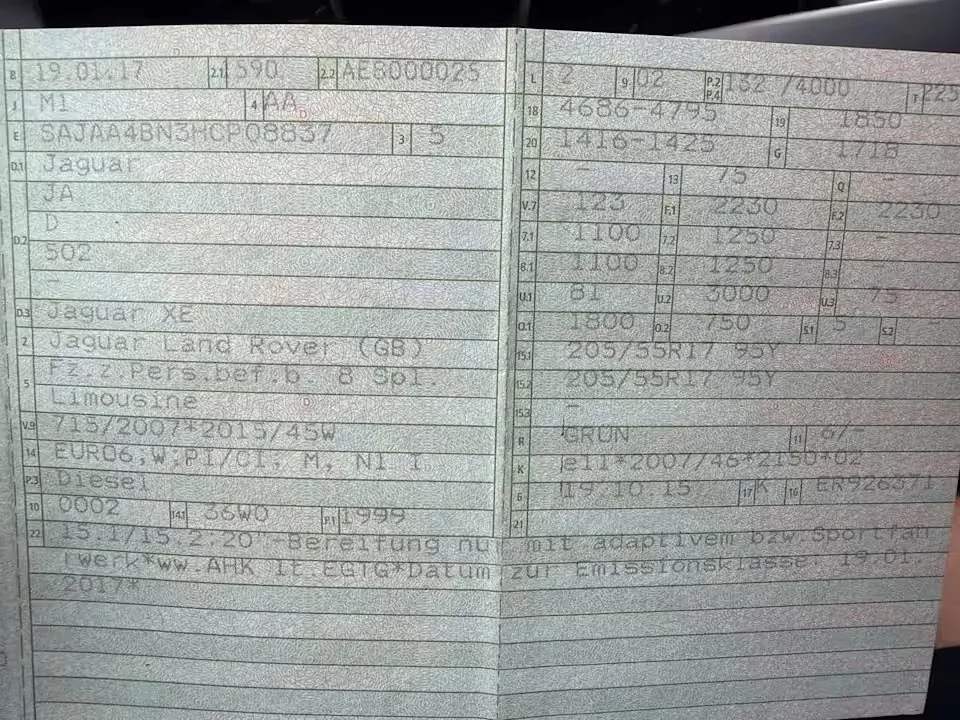 B 19.01.17 2.1 590 2.2 AE8000025
J M1 4 AA
E SAJAA4BN3HCP08837 3 5
D.1 Jaguar
JA
D.2 D
502
-
D.3 Jaguar XE
2 Jaguar Land Rover (GB)
5 Fz.z.Pers.bef.b. 8 Spl.
Limousine
V.9 715/2007*2015/45W
14 EURO6;W;PI/CI; M, N1 I
P.3 Diesel
10 0002 14.1 36W0 P.1 1999
L 2 9 02 P.2 P.4 132 /4000 T 225
18 4686-4795 19 1850
20 1416-1425 G 1718
12 - 13 75 Q -
V.7 123 F.1 2230 F.2 2230
7.1 1100 7.2 1250 7.3 -
8.1 1100 8.2 1250 8.3 -
U.1 81 U.2 3000 U.3 75
O.1 1800 O.2 750 S.1 5 S.2 -
15.1 205/55R17 95Y
15.2 205/55R17 95Y
15.3 -
R GRÜN 11 6/-
K e11*2007/46*2150*02
6 19.10.15 17 K 16 ER926371
21
22 15.1/15.2:20"-Bereifung nur mit adaptivem bzw.Sportfah
rwerk*ww.AHK lt.EGTG*Datum zur Emissionsklasse: 19.01.
2017*